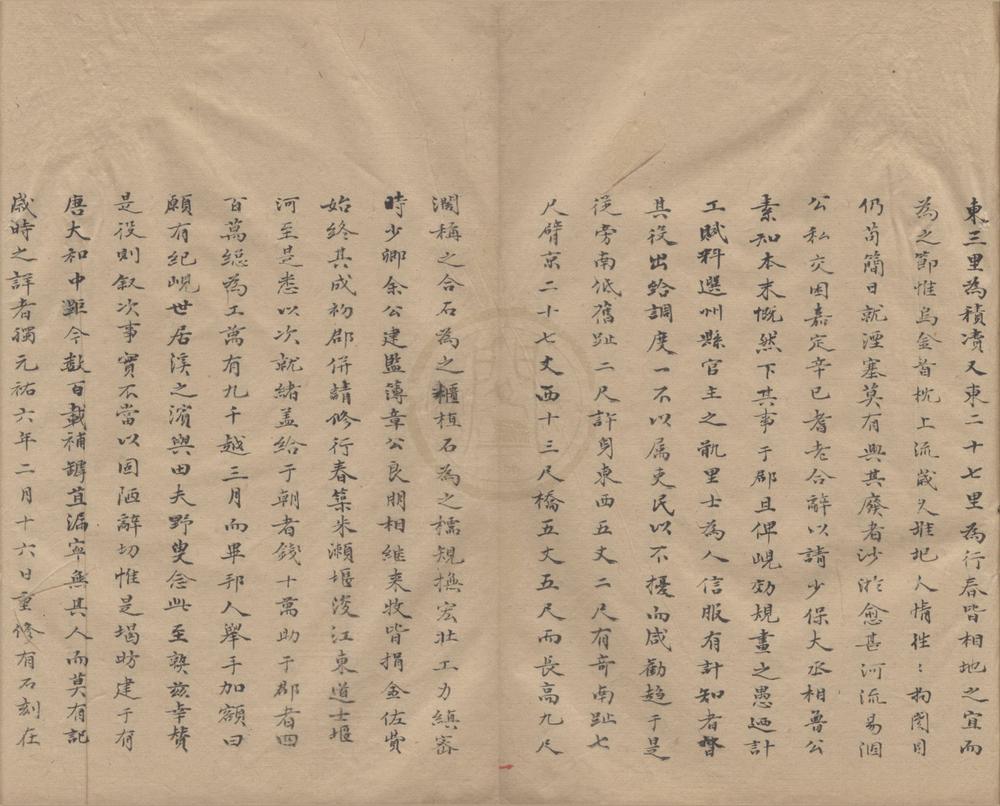 東三里為積瀆又東二十七里為行春皆相地之宜而
為之節惟烏金首枕上流歲久堆圯人情狃:狥囿目
仍苟簡日就湮塞莫有興其廢者沙淤愈甚河流易涸
公私交困嘉定辛巳耆老合辭以請少保大丞相魯公
素知本末慨然下其事于郡且俾峴効規畫之愚迺計
工賦料選州縣官主之甿里士為人信服有計知者督
其役出給調度一不以属吏民以不擾而咸勸趋于是
從旁南低舊趾二尺許身東西五丈二尺有奇南趾七
尺臂京二十七丈西十三尺橋五丈五尺而長高九尺
濶稱之合石為之櫃植石為之櫺規撫宏壮工力縝密
時少卿余公建監簿章公良朋相继来牧皆捐金佐費
始終其成礿郡併請修行春築朱瀬堰浚江東道士堰
河至是悉以次就緒盖給于朝者錢十萬助于郡者四
百萬緫為工萬有九千越三月而畢邦人舉手加額曰
願有紀峴世居溪之濱與田夫野叟念此至孰玆幸贊
是役則叙次事實不當以固陋辭切惟是堨昉建于有
唐大和中距今數百載補罅苴漏寧無其人而莫有記
歳時之詳者獨元祐六年二月十六日重修有石刻在